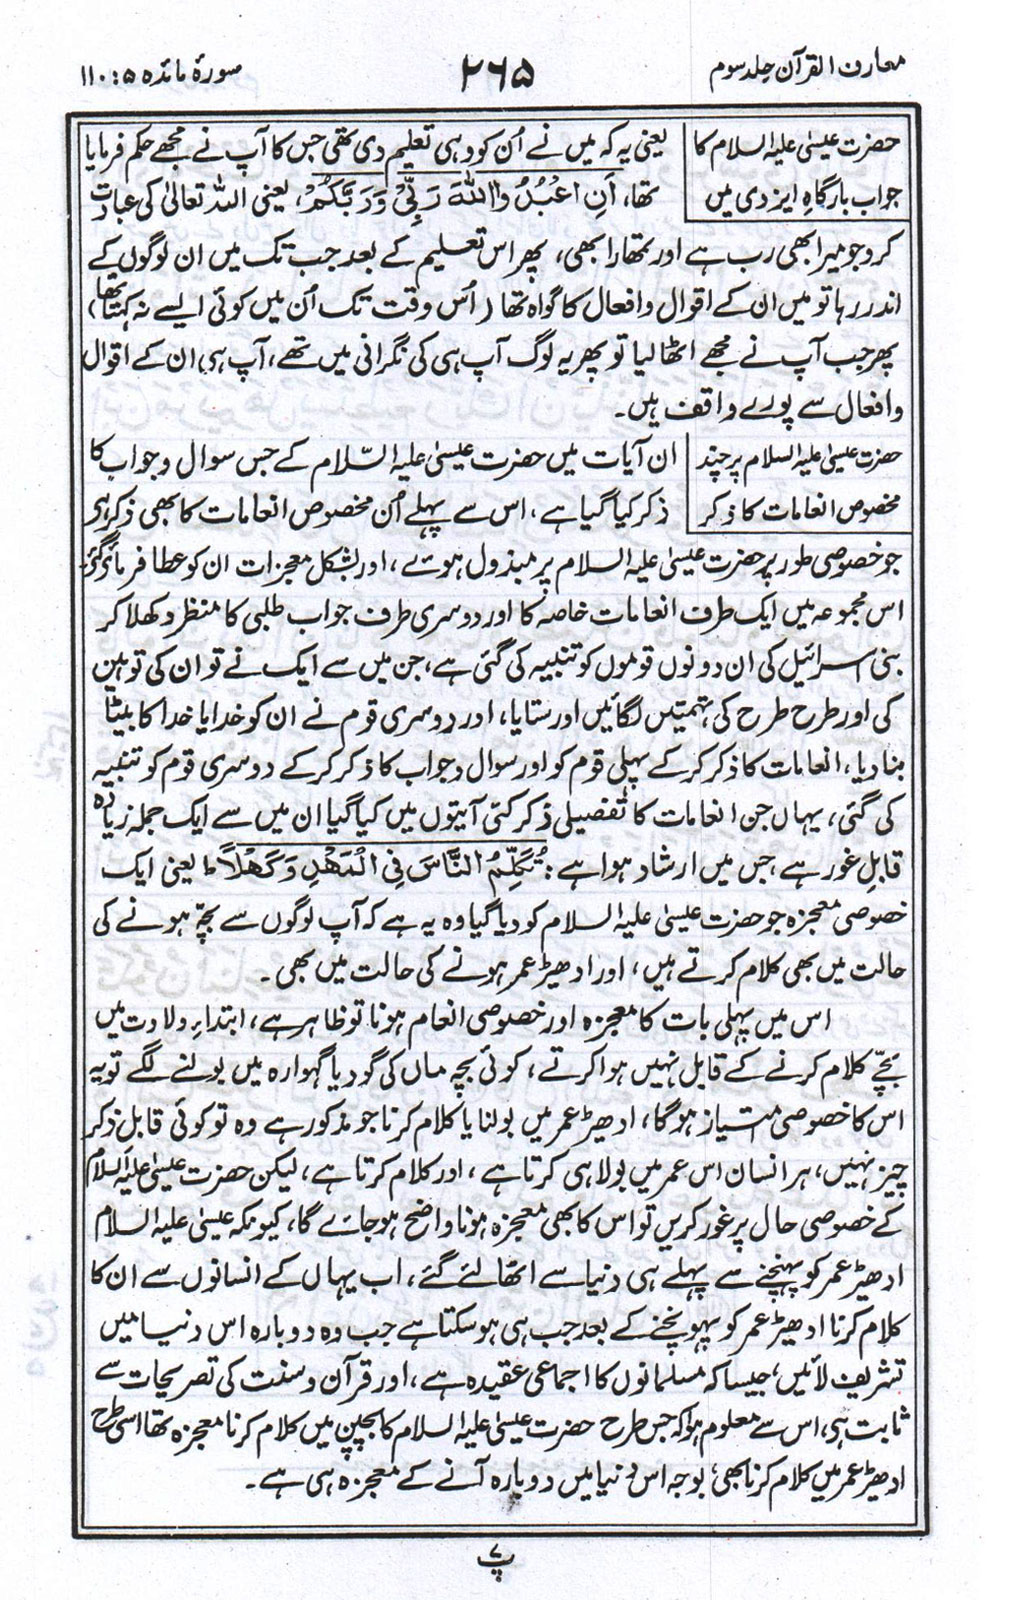 معارف القرآن جلد سوم
۲۶۵
سورۂ مائدہ ۵ : ۱۱۰
حضرت عیسیٰ علیہ السلام کا
جواب بارگاہِ ایزدی میں
یعنی یہ کہ میں نے اُن کو وہی تعلیم دی تھی جس کا آپ نے مجھے حکم فرمایا
تھا، اَنِ اعْبُدُوا اللّٰهَ رَبِّیْ وَرَبَّكُمْ، یعنی اللہ تعالیٰ کی عبادت
کرو جو میرا بھی رب ہے اور تمھارا بھی، پھر اس تعلیم کے بعد جب تک میں ان لوگوں کے
اندر رہا تو میں ان کے اقوال و افعال کا گواہ تھا (اُس وقت تک اُن میں کوئی ایسے نہ کہتا تھا)
پھر جب آپ نے مجھے اٹھا لیا تو پھر یہ لوگ آپ ہی کی نگرانی میں تھے، آپ ہی ان کے اقوال
و افعال سے پورے واقف ہیں۔
حضرت عیسیٰ علیہ السلام پر چند
مخصوص انعامات کا ذکر
ان آیات میں حضرت عیسیٰ علیہ السّلام کے جس سوال و جواب کا
ذکر کیا گیا ہے، اس سے پہلے اُن مخصوص انعامات کا بھی ذکر ہی
جو خصوصی طور پر حضرت عیسیٰ علیہ السلام پر مبذول ہوئے، اور بشکل معجزات ان کو عطا فرمائی گئی
اس مجموعہ میں ایک طرف انعامات خاصہ کا اور دوسری طرف جواب طلبی کا منظر دکھلا کر
بنی اسرائیل کی ان دونوں قوموں کو تنبیہ کی گئی ہے، جن میں سے ایک نے تو ان کی توہین
کی اور طرح طرح کی تہمتیں لگائیں اور ستایا، اور دوسری قوم نے ان کو خدا یا خدا کا بیٹا
بنا دیا، انعامات کا ذکر کر کے پہلی قوم کو اور سوال و جواب کا ذکر کر کے دوسری قوم کو تنبیہ
کی گئی، یہاں جن انعامات کا تفصیلی ذکر کئی آیتوں میں کیا گیا ان میں سے ایک جملہ زیادہ
قابلِ غور ہے جس میں ارشاد ہوا ہے: تُكَلِّمُ النَّاسَ فِی الْمَهْدِ وَكَهْلًا ط یعنی ایک
خصوصی معجزہ جو حضرت عیسیٰ علیہ السلام کو دیا گیا وہ یہ ہے کہ آپ لوگوں سے بچّہ ہونے کی
حالت میں بھی کلام کرتے ہیں، اور ادھیڑ عمر ہونے کی حالت میں بھی۔
اس میں پہلی بات کا معجزہ اور خصوصی انعام ہونا تو ظاہر ہے، ابتداءِ ولادت میں
بچّے کلام کرنے کے قابل نہیں ہوا کرتے، کوئی بچہ ماں کی گود یا گہوارہ میں بولنے لگے تو یہ
اس کا خصوصی امتیاز ہوگا، ادھیڑ عمر میں بولنا یا کلام کرنا جو مذکور ہے وہ تو کوئی قابلِ ذکر
چیز نہیں، ہر انسان اس عمر میں بولا ہی کرتا ہے، اور کلام کرتا ہے، لیکن حضرت عیسیٰ علیہ السلام
کے خصوصی حال پر غور کریں تو اس کا بھی معجزہ ہونا واضح ہو جائے گا، کیونکہ عیسیٰ علیہ السلام
ادھیڑ عمر کو پہنچنے سے پہلے ہی دنیا سے اٹھا لئے گئے، اب یہاں کے انسانوں سے ان کا
کلام کرنا ادھیڑ عمر کو پہونچنے کے بعد جب ہی ہو سکتا ہے جب وہ دوبارہ اس دنیا میں
تشریف لائیں، جیسا کہ مسلمانوں کا اجماعی عقیدہ ہے، اور قرآن و سنت کی تصریحات سے
ثابت ہی، اس سے معلوم ہوا کہ جس طرح حضرت عیسیٰ علیہ السلام کا بچپن میں کلام کرنا معجزہ تھا اسی طرح
ادھیڑ عمر میں کلام کرنا بھی، بوجہ اس دنیا میں دوبارہ آنے کے معجزہ ہی ہے۔
پ ۷